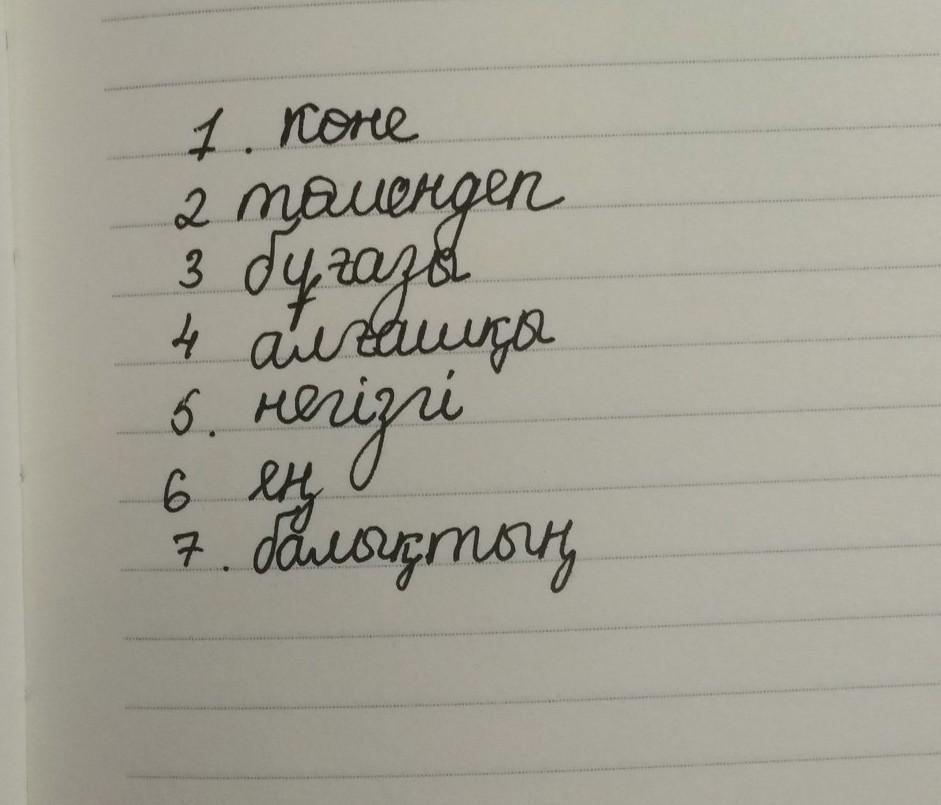 1. көне
2 төмендеп
3 бұғазы
4 алғашқы
5. негізгі
6 ең
7. балықтың